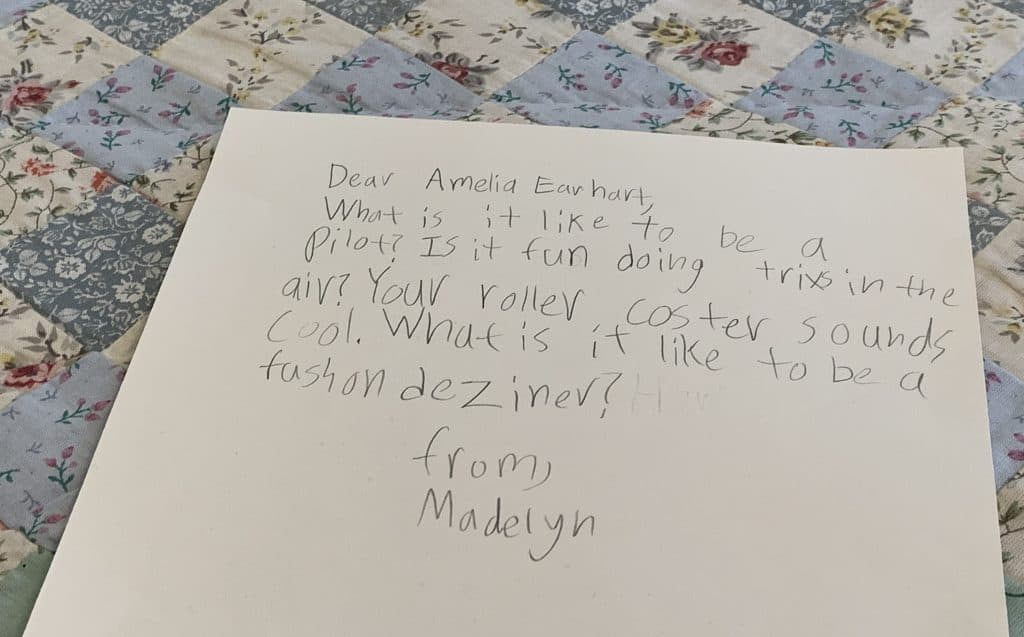 Dear Amelia Earhart,
What is it like to be a
Pilot? Is it fun doing trixs in the
air? Your roller coster sounds
Cool. What is it like to be a
fashon deziner?
from,
Madelyn